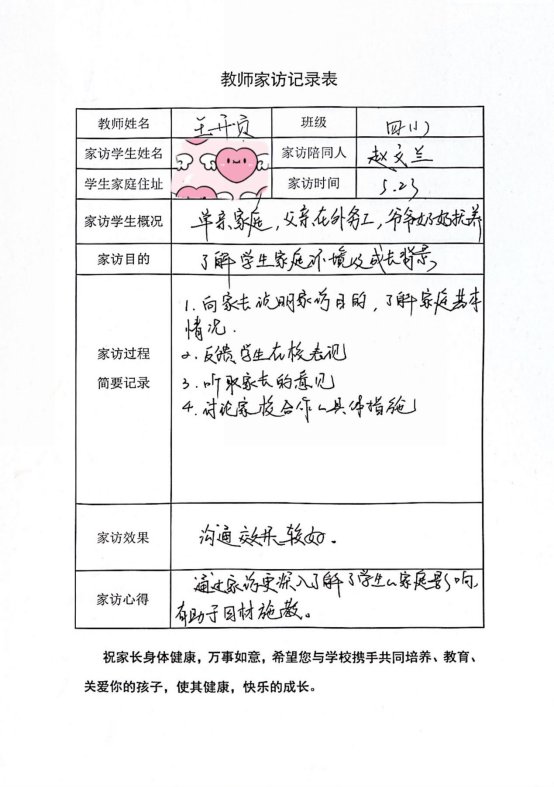 教师家访记录表
教师姓名 王开贞 班级 四(1)
家访学生姓名 家访陪同人 赵文兰
学生家庭住址 家访时间 5.23
家访学生概况 单亲家庭，父亲在外务工，爷爷奶奶抚养
家访目的 了解学生家庭环境及成长背景
家访过程
简要记录
1.向家长说明家访目的，了解家庭基本
情况.
2.反馈学生在校表现
3.听取家长的意见
4.讨论家校合作的具体措施
家访效果 沟通效果较好。
家访心得 通过家访更深入了解了学生的家庭影响,
有助于因材施教。
祝家长身体健康，万事如意，希望您与学校携手共同培养、教育、
关爱你的孩子，使其健康，快乐的成长。